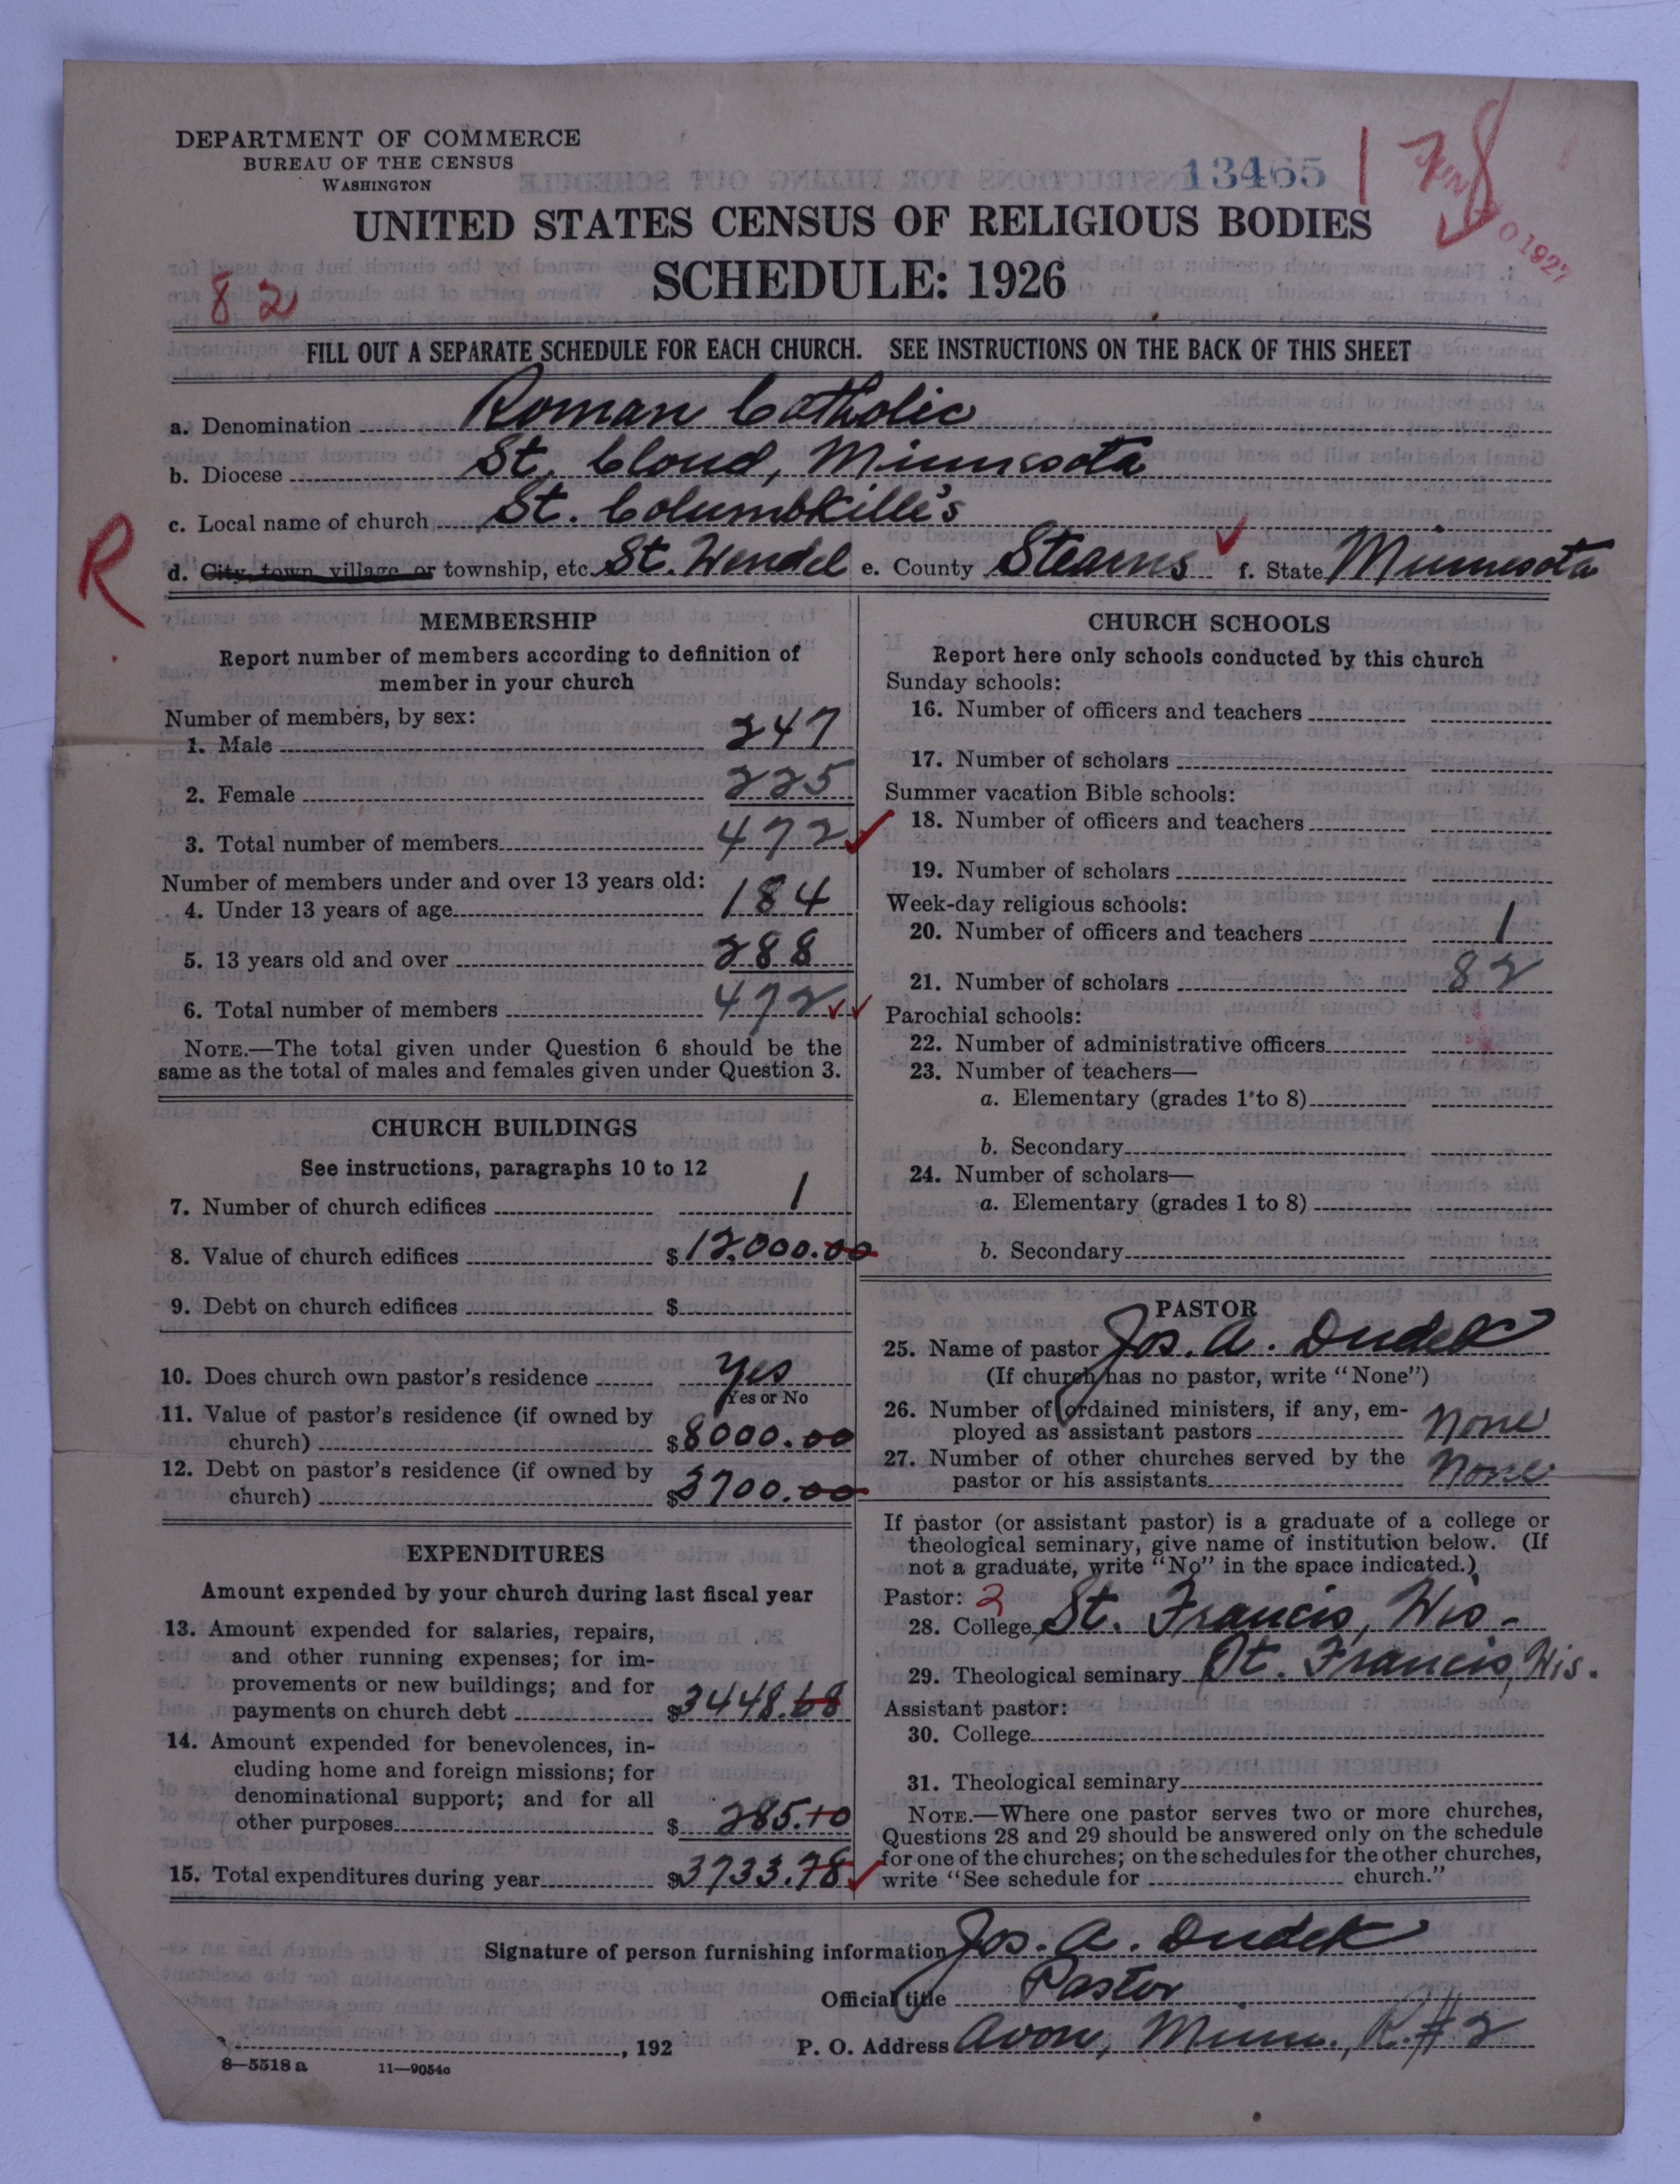 DEPARTMENT OF COMMERCE
BUREAU OF THE CENSUS
WASHINGTON
13465
UNITED STATES CENSUS OF RELIGIOUS BODIES
SCHEDULE: 1926
82
FILL OUT A SEPARATE SCHEDULE FOR EACH CHURCH. SEE INSTRUCTIONS ON THE BACK OF THIS SHEET
a. Denomination Roman Catholic
b. Diocese St. Cloud, Minnesota
c. Local name of church St. Columbkille's
R
d. City, town, village, or township, etc. St. Wendel e. County Stearns f. State Minnesota
MEMBERSHIP
Report number of members according to definition of
member in your church
Number of members, by sex:
1. Male 247
2. Female 225
3. Total number of members 472
Number of members under and over 13 years old:
4. Under 13 years of age 184
5. 13 years old and over 288
6. Total number of members 472
NOTE.—The total given under Question 6 should be the
same as the total of males and females given under Question 3.
CHURCH BUILDINGS
See instructions, paragraphs 10 to 12
7. Number of church edifices 1
8. Value of church edifices $12,000.00
9. Debt on church edifices $
10. Does church own pastor's residence Yes
Yes or No
11. Value of pastor's residence (if owned by
church) $8000.00
12. Debt on pastor's residence (if owned by
church) $3700.00
EXPENDITURES
Amount expended by your church during last fiscal year
13. Amount expended for salaries, repairs,
and other running expenses; for im-
provements or new buildings; and for
payments on church debt $3448.68
14. Amount expended for benevolences, in-
cluding home and foreign missions; for
denominational support; and for all
other purposes $285.10
15. Total expenditures during year $3733.78
CHURCH SCHOOLS
Report here only schools conducted by this church
Sunday schools:
16. Number of officers and teachers
17. Number of scholars
Summer vacation Bible schools:
18. Number of officers and teachers
19. Number of scholars
Week-day religious schools:
20. Number of officers and teachers 1
21. Number of scholars 82
Parochial schools:
22. Number of administrative officers
23. Number of teachers—
a. Elementary (grades 1 to 8)
b. Secondary
24. Number of scholars—
a. Elementary (grades 1 to 8)
b. Secondary
PASTOR
25. Name of pastor Jos. A. Dudek
(If church has no pastor, write "None")
26. Number of ordained ministers, if any, em-
ployed as assistant pastors None
27. Number of other churches served by the
pastor or his assistants None
If pastor (or assistant pastor) is a graduate of a college or
theological seminary, give name of institution below. (If
not a graduate, write "No" in the space indicated.)
Pastor: 2
28. College St. Francis, Wis.
29. Theological seminary St. Francis, Wis.
Assistant pastor:
30. College
31. Theological seminary
NOTE.—Where one pastor serves two or more churches,
Questions 28 and 29 should be answered only on the schedule
for one of the churches; on the schedules for the other churches,
write "See schedule for church."
Signature of person furnishing information Jos. A. Dudek
Official title Pastor
, 192 P. O. Address Avon, Minn., R.#2
8—5518 a 11—9054c